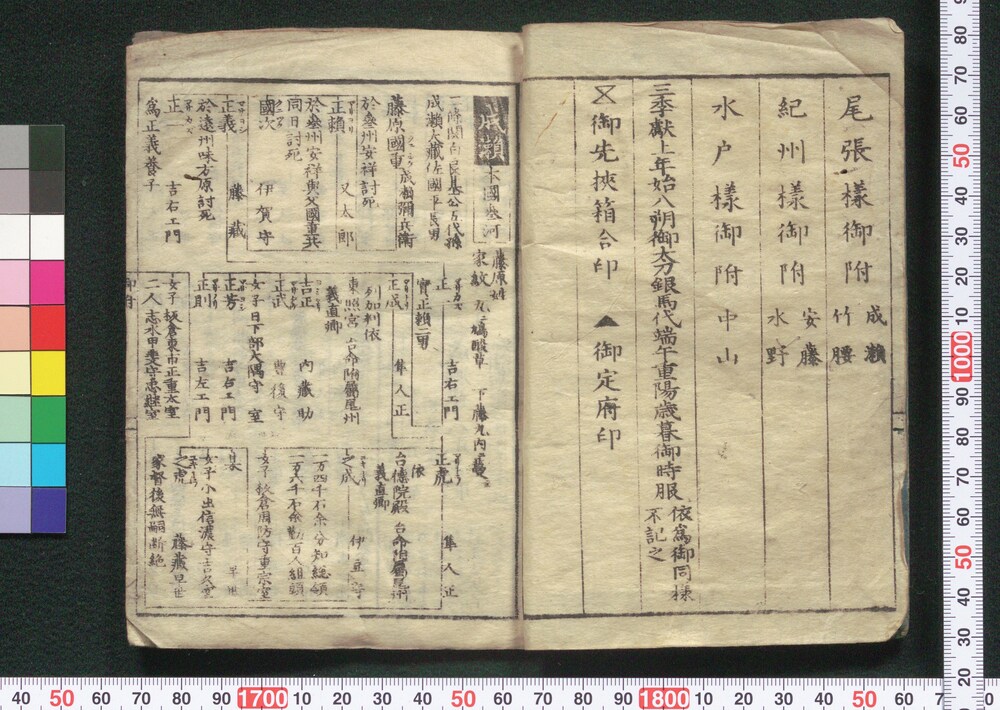 尾張様御附 成瀬 竹腰
紀州様御附 安藤 水野
水戸様御附 中山
三季献上年始八朔御太刀銀馬代端午重陽歳暮御時服 依為御同様 不記之
御先挟箱合印 ▲御定府印
成瀬 本國参河
藤原姓
家紋
二條関白良基公五代孫
成瀬大蔵佐國平長男
藤原國重 成瀬彌兵衛
於参州安祥討死
正頼 又太郎
於参州安祥與父國重共
同日討死
國次 伊賀守
正義 藤蔵
於遠州味方原討死
正一 吉右エ門
為正義養子
正一 吉右エ門
實正頼二男
正成 隼人正
東照宮台命附属尾州
義直卿
吉正 内蔵助
正武 豊後守
女子 日下部大隅守室
正芳 吉右エ門
正則 吉左エ門
女子 板倉東市正重太室
二人 志水甲斐守忠継室
正虎 隼人正
依
台徳院殿台命附属尾州
義直卿
之成 伊豆守
一万四千石余分知総領
一万六千石余百人組頭
女子 板倉周防守重宗室
早世
女子 小出信濃守吉久室
之虎 藤蔵早世
家督後無嗣断絶
40 50 60 70 80 90 1700 10 20 30 40 50 60 70 80 90 1800 10 20 30 40 50 60 70
80 70 60 50 40 30 20 10 1000 90 80 70 60 50 40 30 20